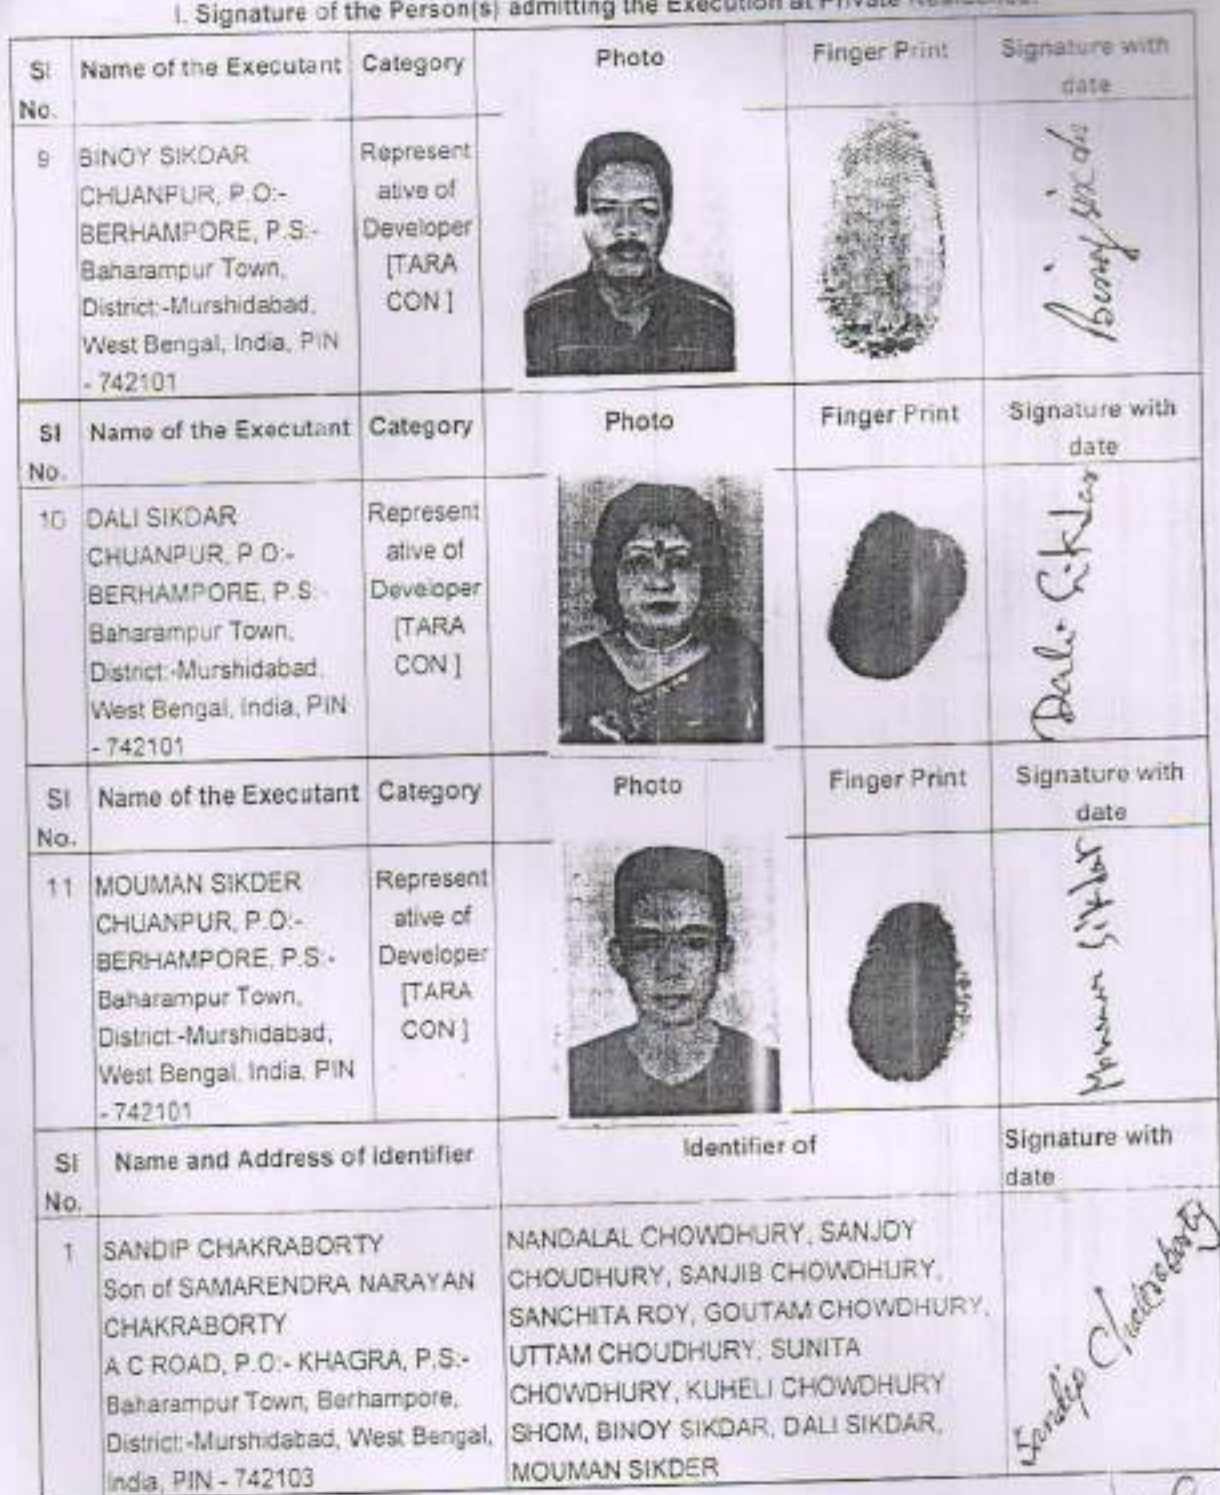 I. Signature of the Person(s) admitting the Execution at Private Residence.
Sl No.
Name of the Executant
Category
Photo
Finger Print
Signature with date
9
BINOY SIKDAR
CHUANPUR, P.O:-
BERHAMPORE, P.S:-
Baharampur Town,
District:-Murshidabad,
West Bengal, India, PIN
- 742101
Represent
ative of
Developer
[TARA
CON ]
Binoy Sikdar
Sl No.
Name of the Executant
Category
Photo
Finger Print
Signature with date
10
DALI SIKDAR
CHUANPUR, P.O:-
BERHAMPORE, P.S:-
Baharampur Town,
District:-Murshidabad,
West Bengal, India, PIN
- 742101
Represent
ative of
Developer
[TARA
CON ]
Dali Sikdar
Sl No.
Name of the Executant
Category
Photo
Finger Print
Signature with date
11
MOUMAN SIKDER
CHUANPUR, P.O:-
BERHAMPORE, P.S:-
Baharampur Town,
District:-Murshidabad,
West Bengal, India, PIN
- 742101
Represent
ative of
Developer
[TARA
CON ]
Mouman Sikdar
Sl No.
Name and Address of identifier
Identifier of
Signature with
date
1
SANDIP CHAKRABORTY
Son of SAMARENDRA NARAYAN
CHAKRABORTY
A C ROAD, P.O:- KHAGRA, P.S:-
Baharampur Town, Berhampore,
District:-Murshidabad, West Bengal,
India, PIN - 742103
NANDALAL CHOWDHURY, SANJOY
CHOUDHURY, SANJIB CHOWDHURY,
SANCHITA ROY, GOUTAM CHOWDHURY,
UTTAM CHOUDHURY, SUNITA
CHOWDHURY, KUHELI CHOWDHURY
SHOM, BINOY SIKDAR, DALI SIKDAR,
MOUMAN SIKDER
Sandip Chakraborty